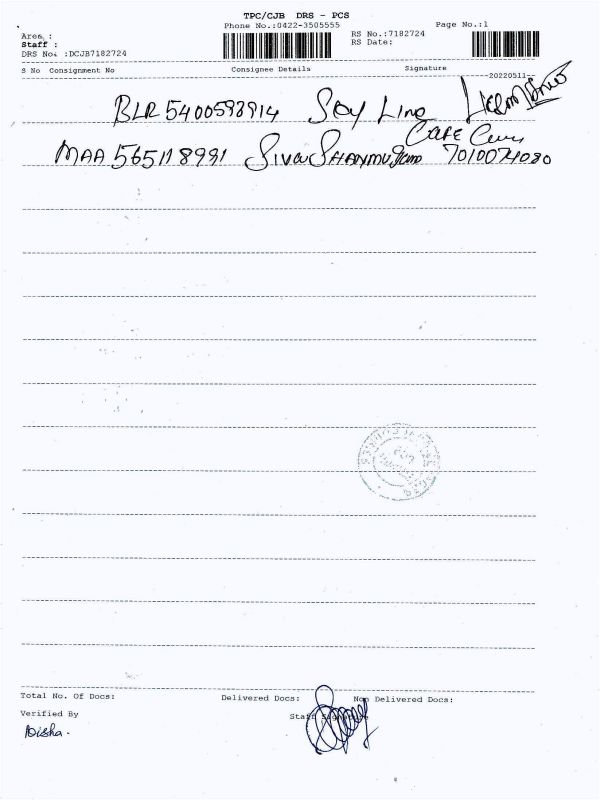 TPC/CJB DRS - PCS
Phone No.:0422-3505555
Page No.:1
Area :
Staff :
DRS No. :DCJB7182724
RS No.:7182724
RS Date:
S No Consignment No Consignee Details Signature
20220511
BLR 5400593914 Sky Line
Care
MAA 565118991 Siva Shanmugam 7010074080
Total No. Of Docs: Delivered Docs: Non Delivered Docs:
Verified By Staff Signature
Disha.